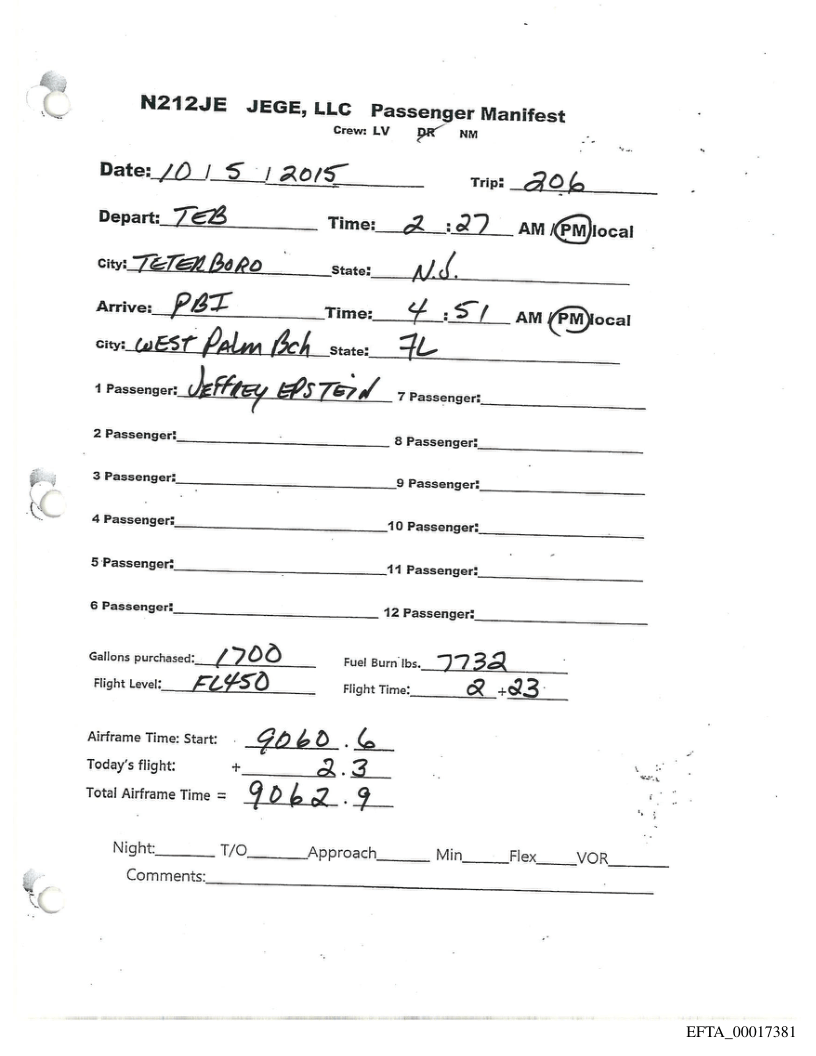 N212JE JEGE, LLC Passenger Manifest
Crew: LV DR NM
Date: 10 / 5 / 2015 Trip: 206
Depart: TEB Time: 2 : 27 AM / PM local
City: TETERBORO State: N.J.
Arrive: PBI Time: 4 : 51 AM / PM local
City: WEST Palm Bch State: FL
1 Passenger: JEFFREY EPSTEIN 7 Passenger:
2 Passenger: 8 Passenger:
3 Passenger: 9 Passenger:
4 Passenger: 10 Passenger:
5 Passenger: 11 Passenger:
6 Passenger: 12 Passenger:
Gallons purchased: 1700 Fuel Burn lbs. 7732
Flight Level: FL450 Flight Time: 2 + 23
Airframe Time: Start: 9060.6
Today's flight: + 2.3
Total Airframe Time = 9062.9
Night: T/O Approach Min Flex VOR
Comments:
EFTA_00017381